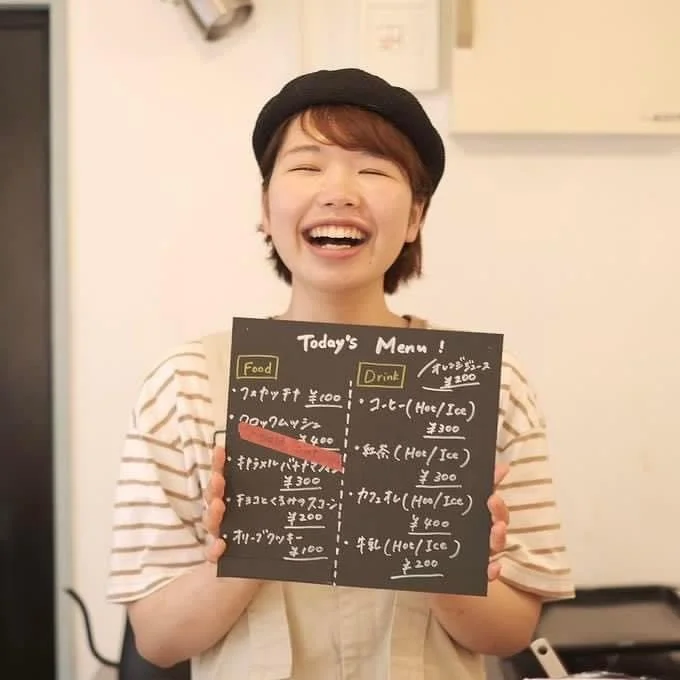 Today's Menu !
Food
・フォカッチャ ¥100
・クロックムッシュ
¥400
・キャラメルバナナマフィン
¥300
・チョコとくるみのスコーン
¥200
・オリーブクッキー
¥100
Drink
オレンジジュース
¥200
・コーヒー(Hot/Ice)
¥300
・紅茶(Hot/Ice)
¥300
・カフェオレ(Hot/Ice)
¥400
・牛乳(Hot/Ice)
¥200